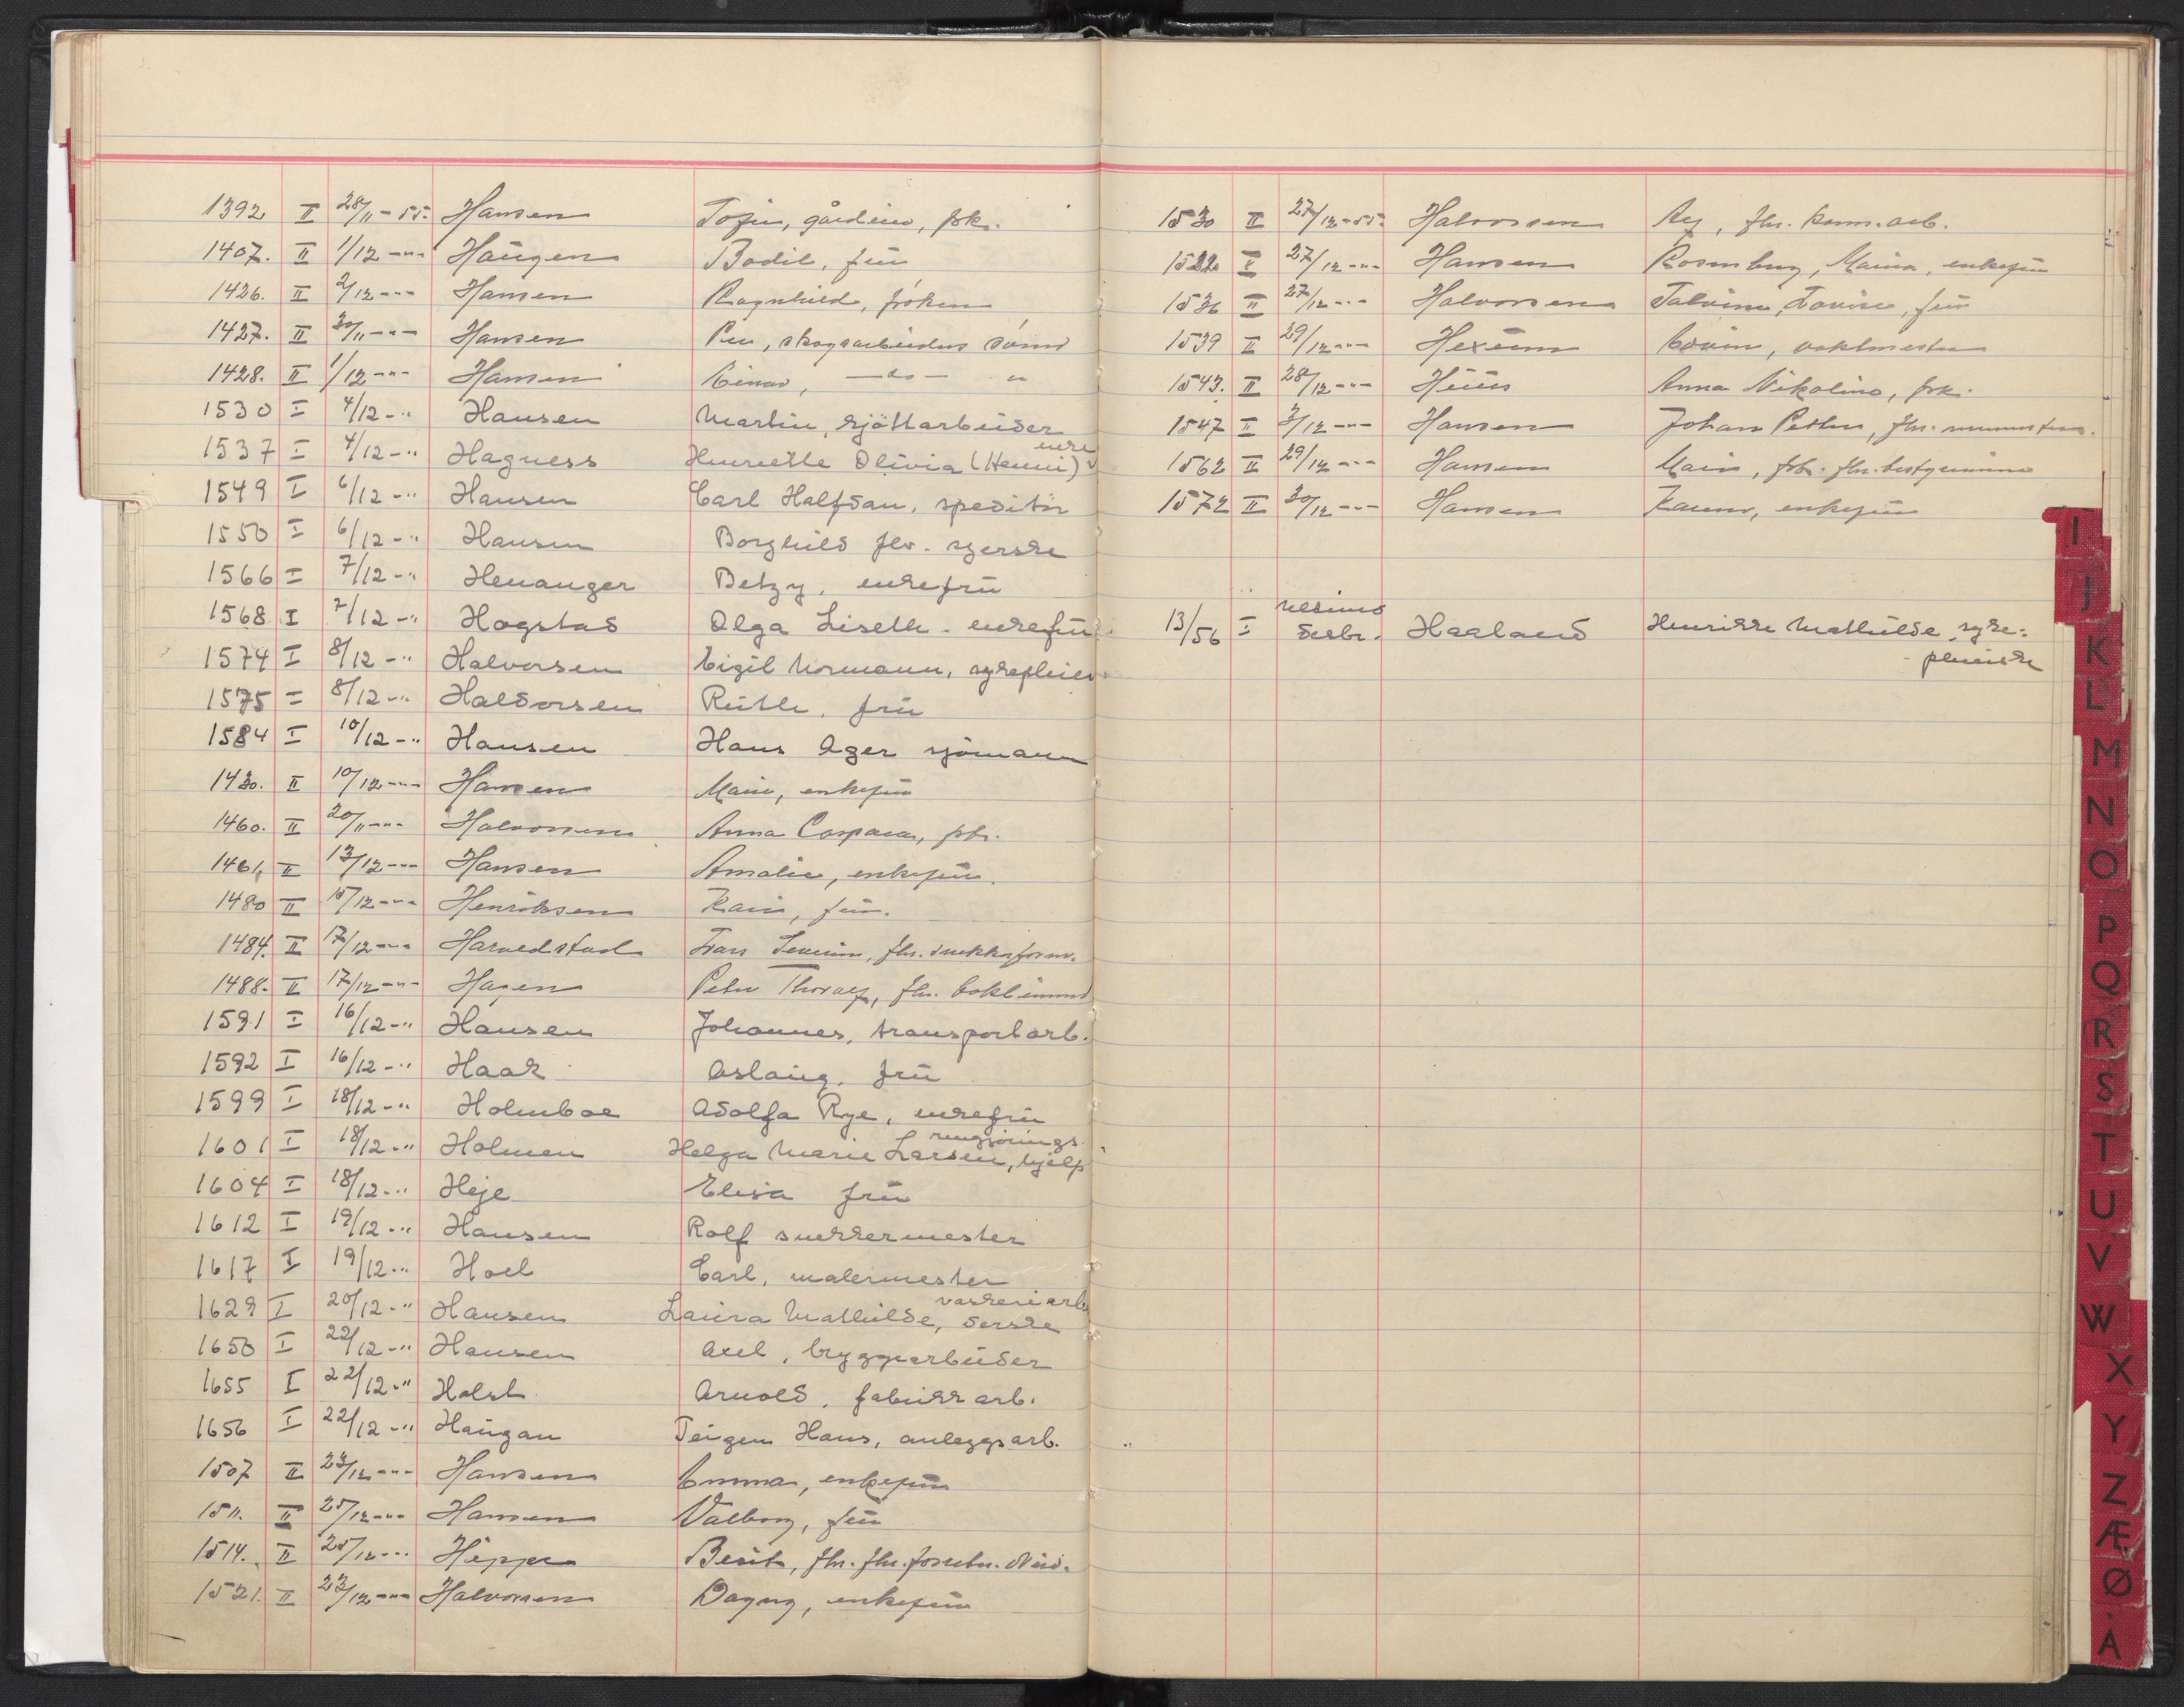 1392 II 28/11-55. Hansen
1407. II 1/12 -"- Haugen Bodil, frü
1426. II 2/12 -"- Hansen Ragnhild, frøken
1427. II 30/11 -"- Hansen Per, skogsarbeiders sønn
1428. II 1/12 -"- Hansen Einar, -do- "
1530 I 4/12 -" Hansen Martin, sjöttarbeider
1537 I 4/12 -" Hagness Henriette Olivia (Henni)
1549 I 6/12 -" Hansen Carl Halfdan, speditör
1550 I 6/12 -" Hansen Borghild fhv. syerske
1566 I 7/12 -" Henanger Betzy, enkefrü
1568 I 7/12 -" Hogstad Olga Liseth. enkefrü
1574 I 8/12 -" Halvorsen Eigil Normann, sykepleier
1575 I 8/12 -" Haldorsen Rüth, frü
1584 I 10/12 -" Hansen Hans Ager sjömann
1430. II 10/12 -"- Hansen Marie, enkefrü
1460. II 20/11 -"- Halvorsen Anna Caspara, frk.
1461. II 13/12 -"- Hansen Amalie, enkefrü.
1480 II 15/12 -"- Henriksen Kari, frü.
1484. II 17/12 -"- Haraldstad Lars Severin, fhv.
1488. II 17/12 -"- Hagen Peter Thoralf, fhv.
1591 I 16/12 -" Hansen Johannes, transportarb.
1592 I 16/12 -" Haak Aslaüg, frü
1599 I 18/12 -" Holmboe Adolfa Rye, enkefrü
rengjörings
1601 I 18/12 -" Holmen Helga Marie Larsen, hjelp
1604 I 18/12 -" Heje Elisa frü
1612 I 19/12 -" Hansen Rolf snekkermester
1617 I 19/12 -" Hoel Carl, malermester
vaskeriarbei
1629 I 20/12 -" Hansen Laüra Mathilde, derske
1650 I 22/12 -" Hansen Axel, bryggearbeider
1655 I 22/12 -" Holst Arnold, fabrikkarb.
1656 I 22/12 -" Haugan Teigen Hans, anleggsarb.
1507 II 23/12 -"- Hansen Emma, enkefrü
1511. II 25/12 -"- Hansen Valborg, frü
1514. II 25/12 -"- Heppe Berit, fhv.
1521. II 23/12 -"- Halvorsen Dagny, enkefrü
1530 II 27/12-55. Halvorsen fhv. komm.arb.
1522 II 27/12 -"- Hansen Rosenberg, Marie, enkefrü
1536 II 27/12 -"- Halvorsen Lovise, frü
1539 II 29/12 -"- Hexum Edvin, vaktmester
1543. II 28/12 -"- Hüüs Anna Nikoline, frk.
1547 II 3/12 -"- Hansen Johan Petter, fhv. murmester.
1562 II 29/12 -"- Hansen Marie, frk. fhv. bestyrerinne
1572 II 30/12 -"- Hansen Karen, enkefrü
13/56 I ultimo desbr. Haaland Henrikke Mathilde, syke-
pleierske
I
J
K
L
M
N
O
P
Q
R
S
T
U
V
W
X
Y
Z
Æ
Ø
Å